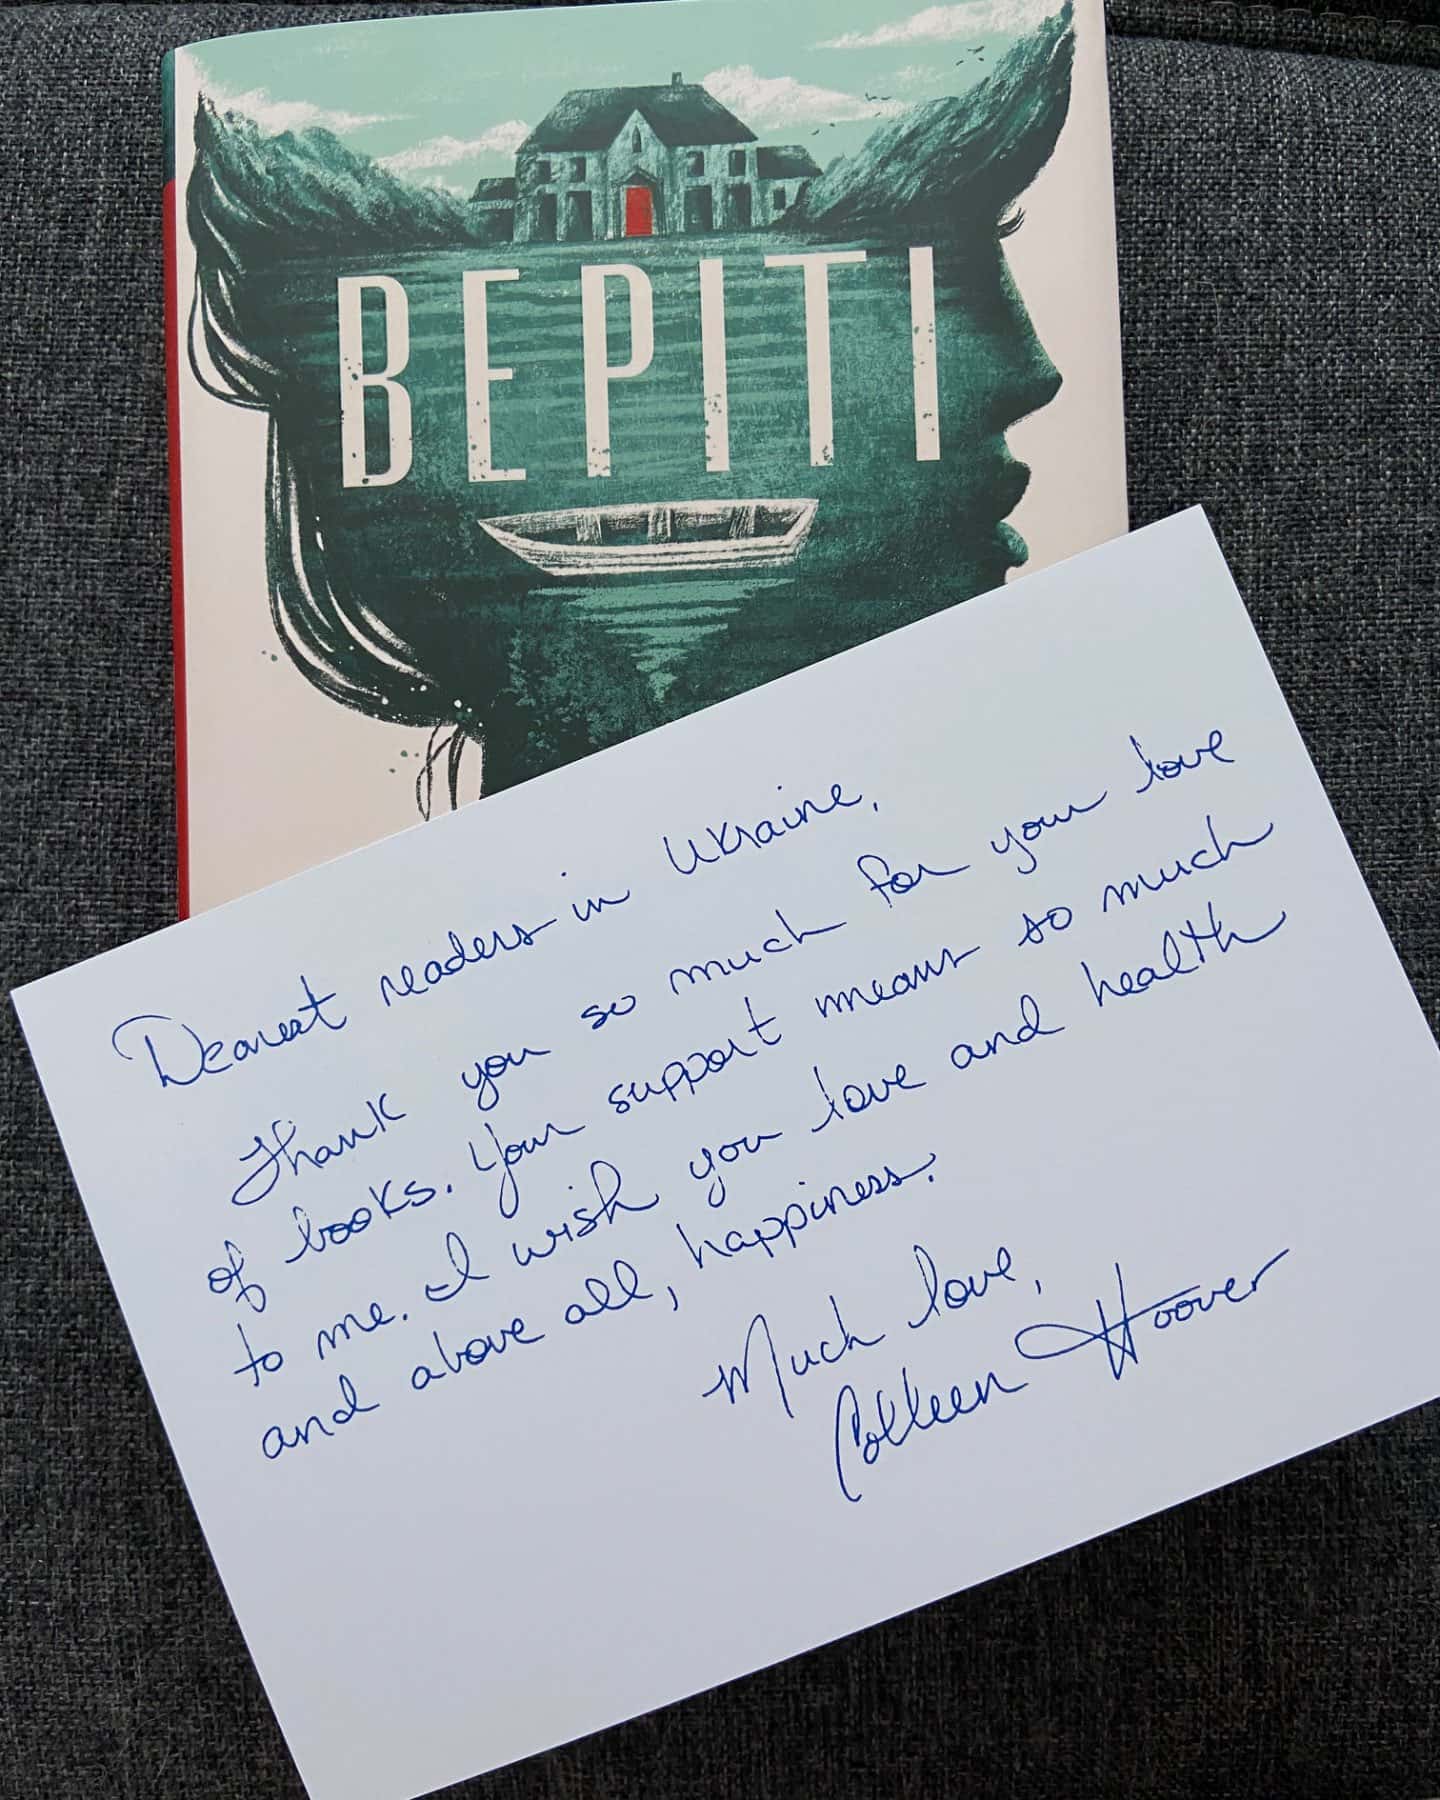 ВЕРІТІ
Dearest readers in Ukraine,
Thank you so much for your love
of books. Your support means so much
to me. I wish you love and health
and above all, happiness.
Much love,
Colleen Hoover